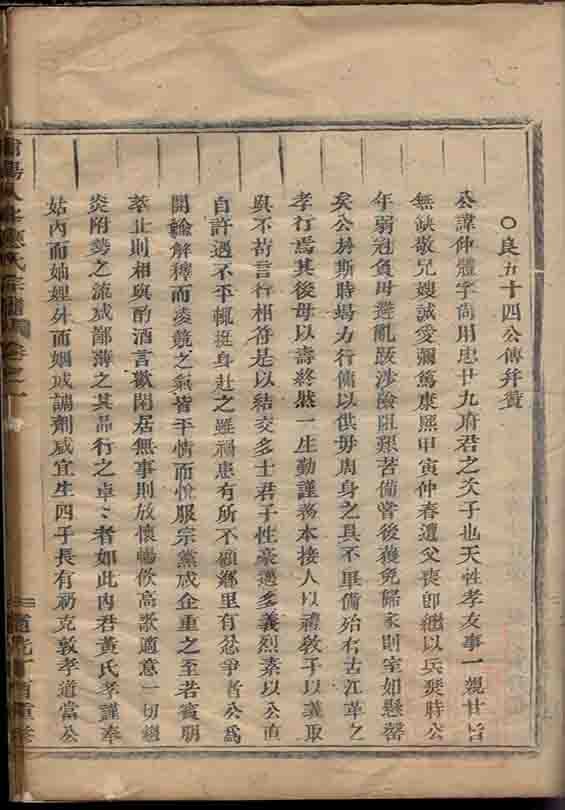 ○良五十四公傳幷贊
公諱仲體字尚用忠廿九府君之次子也天性孝友事二親甘旨
無缺敬兄嫂誠愛彌篤康熙甲寅仲春遭父喪即繼以兵燹時公
年弱冠負母避亂跋涉險阻艱苦備嘗後獲免歸家則室如懸罄
矣公于斯時竭力行傭以供母周身之具不畢備殆有古江革之
孝行焉其後母以壽終然一生勤謹務本接人以禮教子以義取
與不苟言行相符是以結交多士君子性豪邁多義烈素以公直
自許遇不平輒挺身赴之雖禍患有所不顧鄉里有忿爭者公為
開諭解釋而凌競之氣皆平情而悅服宗黨咸企重之至若賓朋
萃止則相與酌酒言歡閑居無事則放懷暢飲高歌適意一切趨
炎附勢之流咸鄙薄之其品行之卓々者如此內君黃氏孝謹奉
姑內而妯娌外而姻戚調劑咸宜生四子長有礽克敦孝道當公
氏宗譜 卷之一
道光丁酉重修